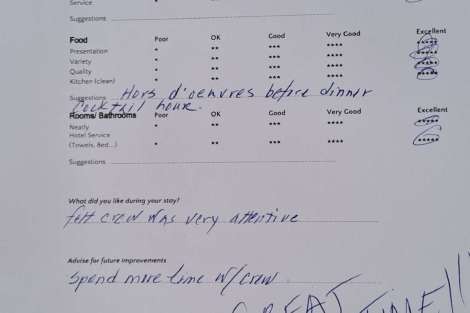 Service
Suggestions
Food Poor OK Good Very Good Excellent
Presentation * ** *** **** *****
Variety * ** *** **** *****
Quality * ** *** **** *****
Kitchen (clean) * ** *** **** *****
Suggestions Hors d'oeuvres before dinner
Cocktail hour.
Rooms/ Bathrooms Poor OK Good Very Good Excellent
Neatly * ** *** **** *****
Hotel Service
(Towels, Bed...) * ** *** **** *****
Suggestions
What did you like during your stay?
felt crew was very attentive
Advise for future improvements
Spend more time w/crew
GREAT TIME!!